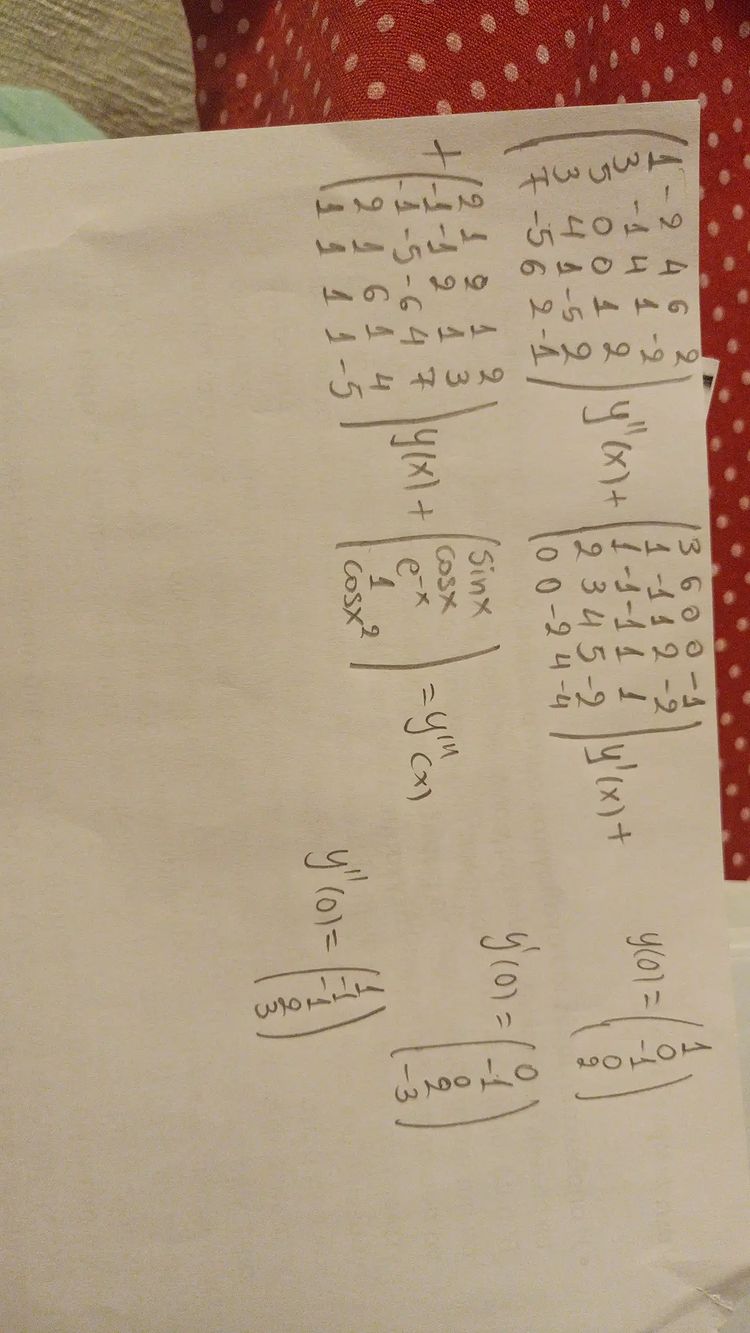 1 -2 4 6 2
3 -1 4 1 -2
5 0 0 1 2
3 4 1 -5 2
7 -5 6 2 -1
y''(x) +
3 6 0 0 -1
1 -1 1 2 -2
1 -1 -1 1 1
2 3 4 5 -2
0 0 -2 4 -4
y'(x) +
+
2 1 2 1 2
-1 -1 2 1 3
-1 -5 -6 4 7
2 1 6 1 4
1 1 1 1 -5
y(x) +
sinx
cosx
e^-x
1
cosx²
= y'''(x)
y(0) =
1
0
-1
0
2
y'(0) =
0
-1
0
2
-3
y''(0) =
1
-1
-1
2
3